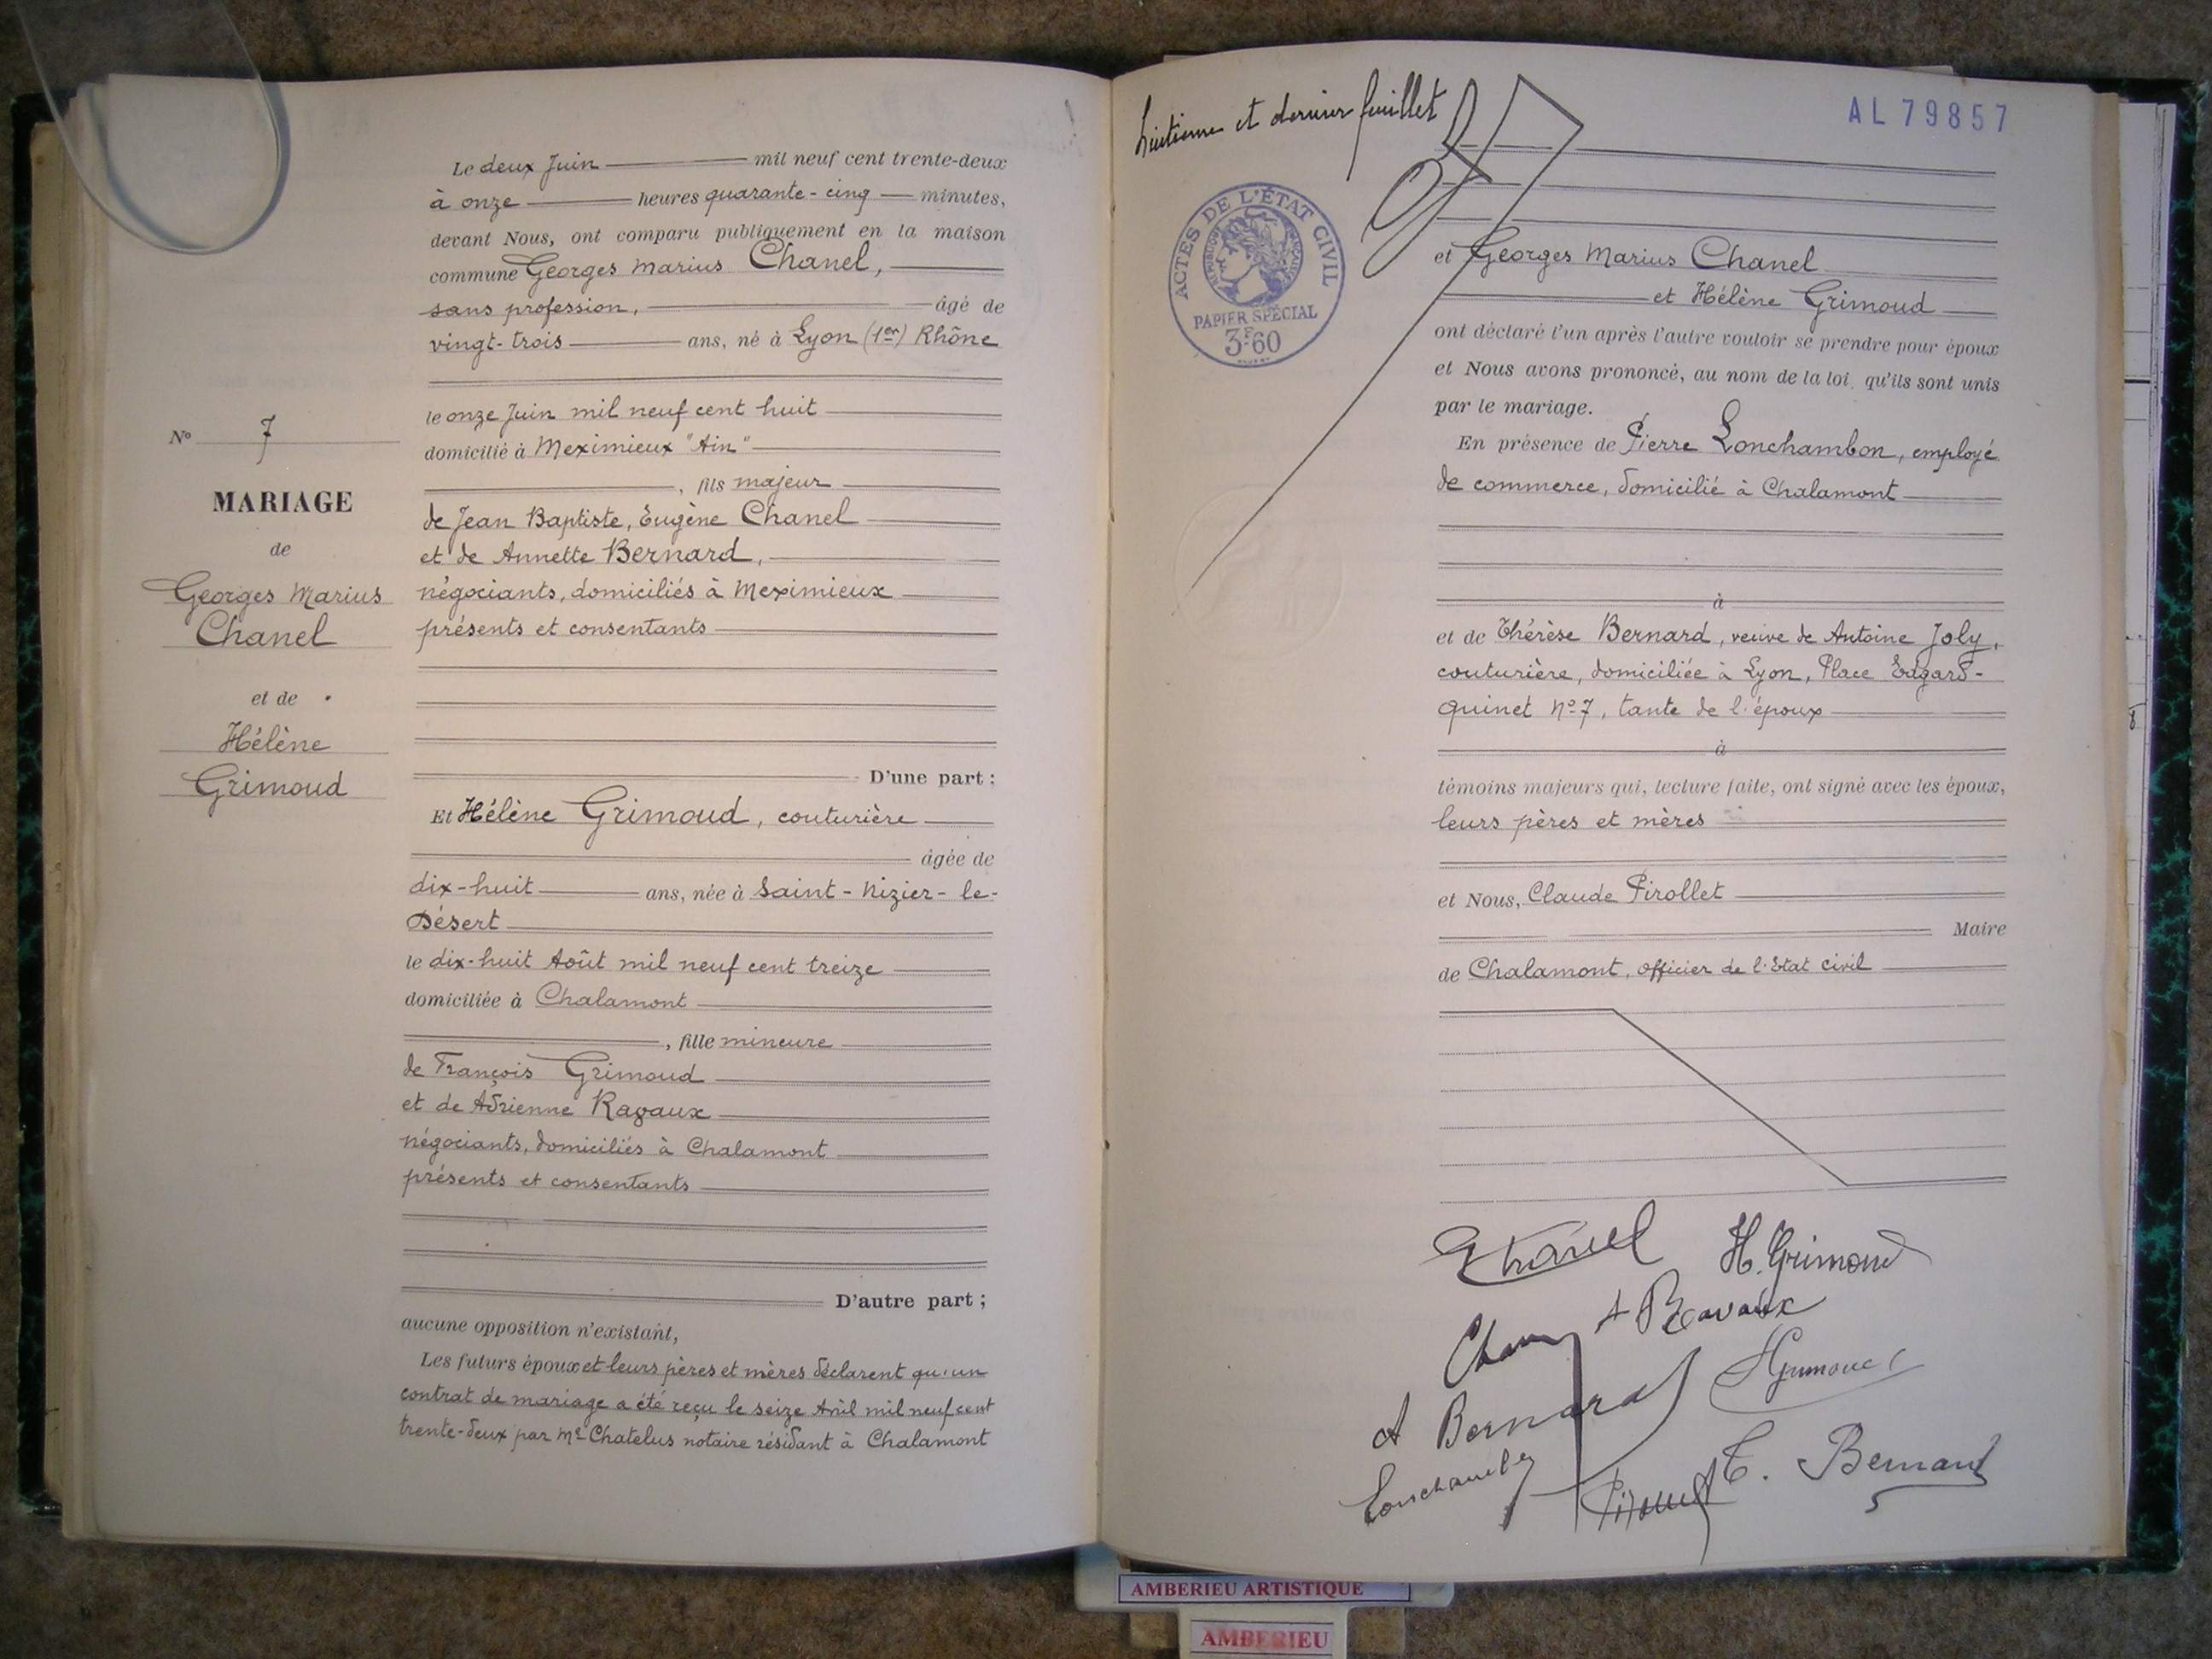 Le deux Juin mil neuf cent trente-deux
à onze heures quarante-cinq minutes,
devant Nous, ont comparu publiquement en la maison
commune Georges Marius Chanel,
sans profession, âgé de
vingt-trois ans, né à Lyon (1er) Rhône
le onze Juin mil neuf cent huit
domicilié à Meximieux "Ain"
, fils majeur
de Jean Baptiste, Eugène Chanel
et de Annette Bernard,
négociants, domiciliés à Meximieux
présents et consentants
D'une part ;
Et Hélène Grimoud, couturière
âgée de
dix-huit ans, née à Saint-Nizier-le-
Désert
le dix-huit Août mil neuf cent treize
domiciliée à Chalamont
, fille mineure
de François Grimoud
et de Adrienne Ravaux
négociants, domiciliés à Chalamont
présents et consentants
D'autre part ;
aucune opposition n'existant,
Les futurs époux et leurs pères et mères déclarent qu'un
contrat de mariage a été reçu le seize Avril mil neuf cent
trente-deux par Me Chatelus notaire résidant à Chalamont
No 7
MARIAGE
de
Georges Marius
Chanel
et de
Hélène
Grimoud
huitième et dernier feuillet
AL 79857
ACTES DE L'ÉTAT CIVIL
RÉPUBLIQUE FRANÇAISE
PAPIER SPÉCIAL
3F60
et Georges Marius Chanel
et Hélène Grimoud
ont déclaré l'un après l'autre vouloir se prendre pour époux
et Nous avons prononcé, au nom de la loi, qu'ils sont unis
par le mariage.
En présence de Pierre Lonchambon, employé
de commerce, domicilié à Chalamont
à
et de Thérèse Bernard, veuve de Antoine Joly,
couturière, domiciliée à Lyon, Place Edgard-
Quinet No 7, tante de l'époux
à
témoins majeurs qui, lecture faite, ont signé avec les époux,
leurs pères et mères
et Nous, Claude Pirollet
Maire
de Chalamont, officier de l'Etat civil
Chanel H. Grimoud
A Ravaux
A Bernard
Grimoud
T. Bernard
AMBERIEU ARTISTIQUE
AMBERIEU